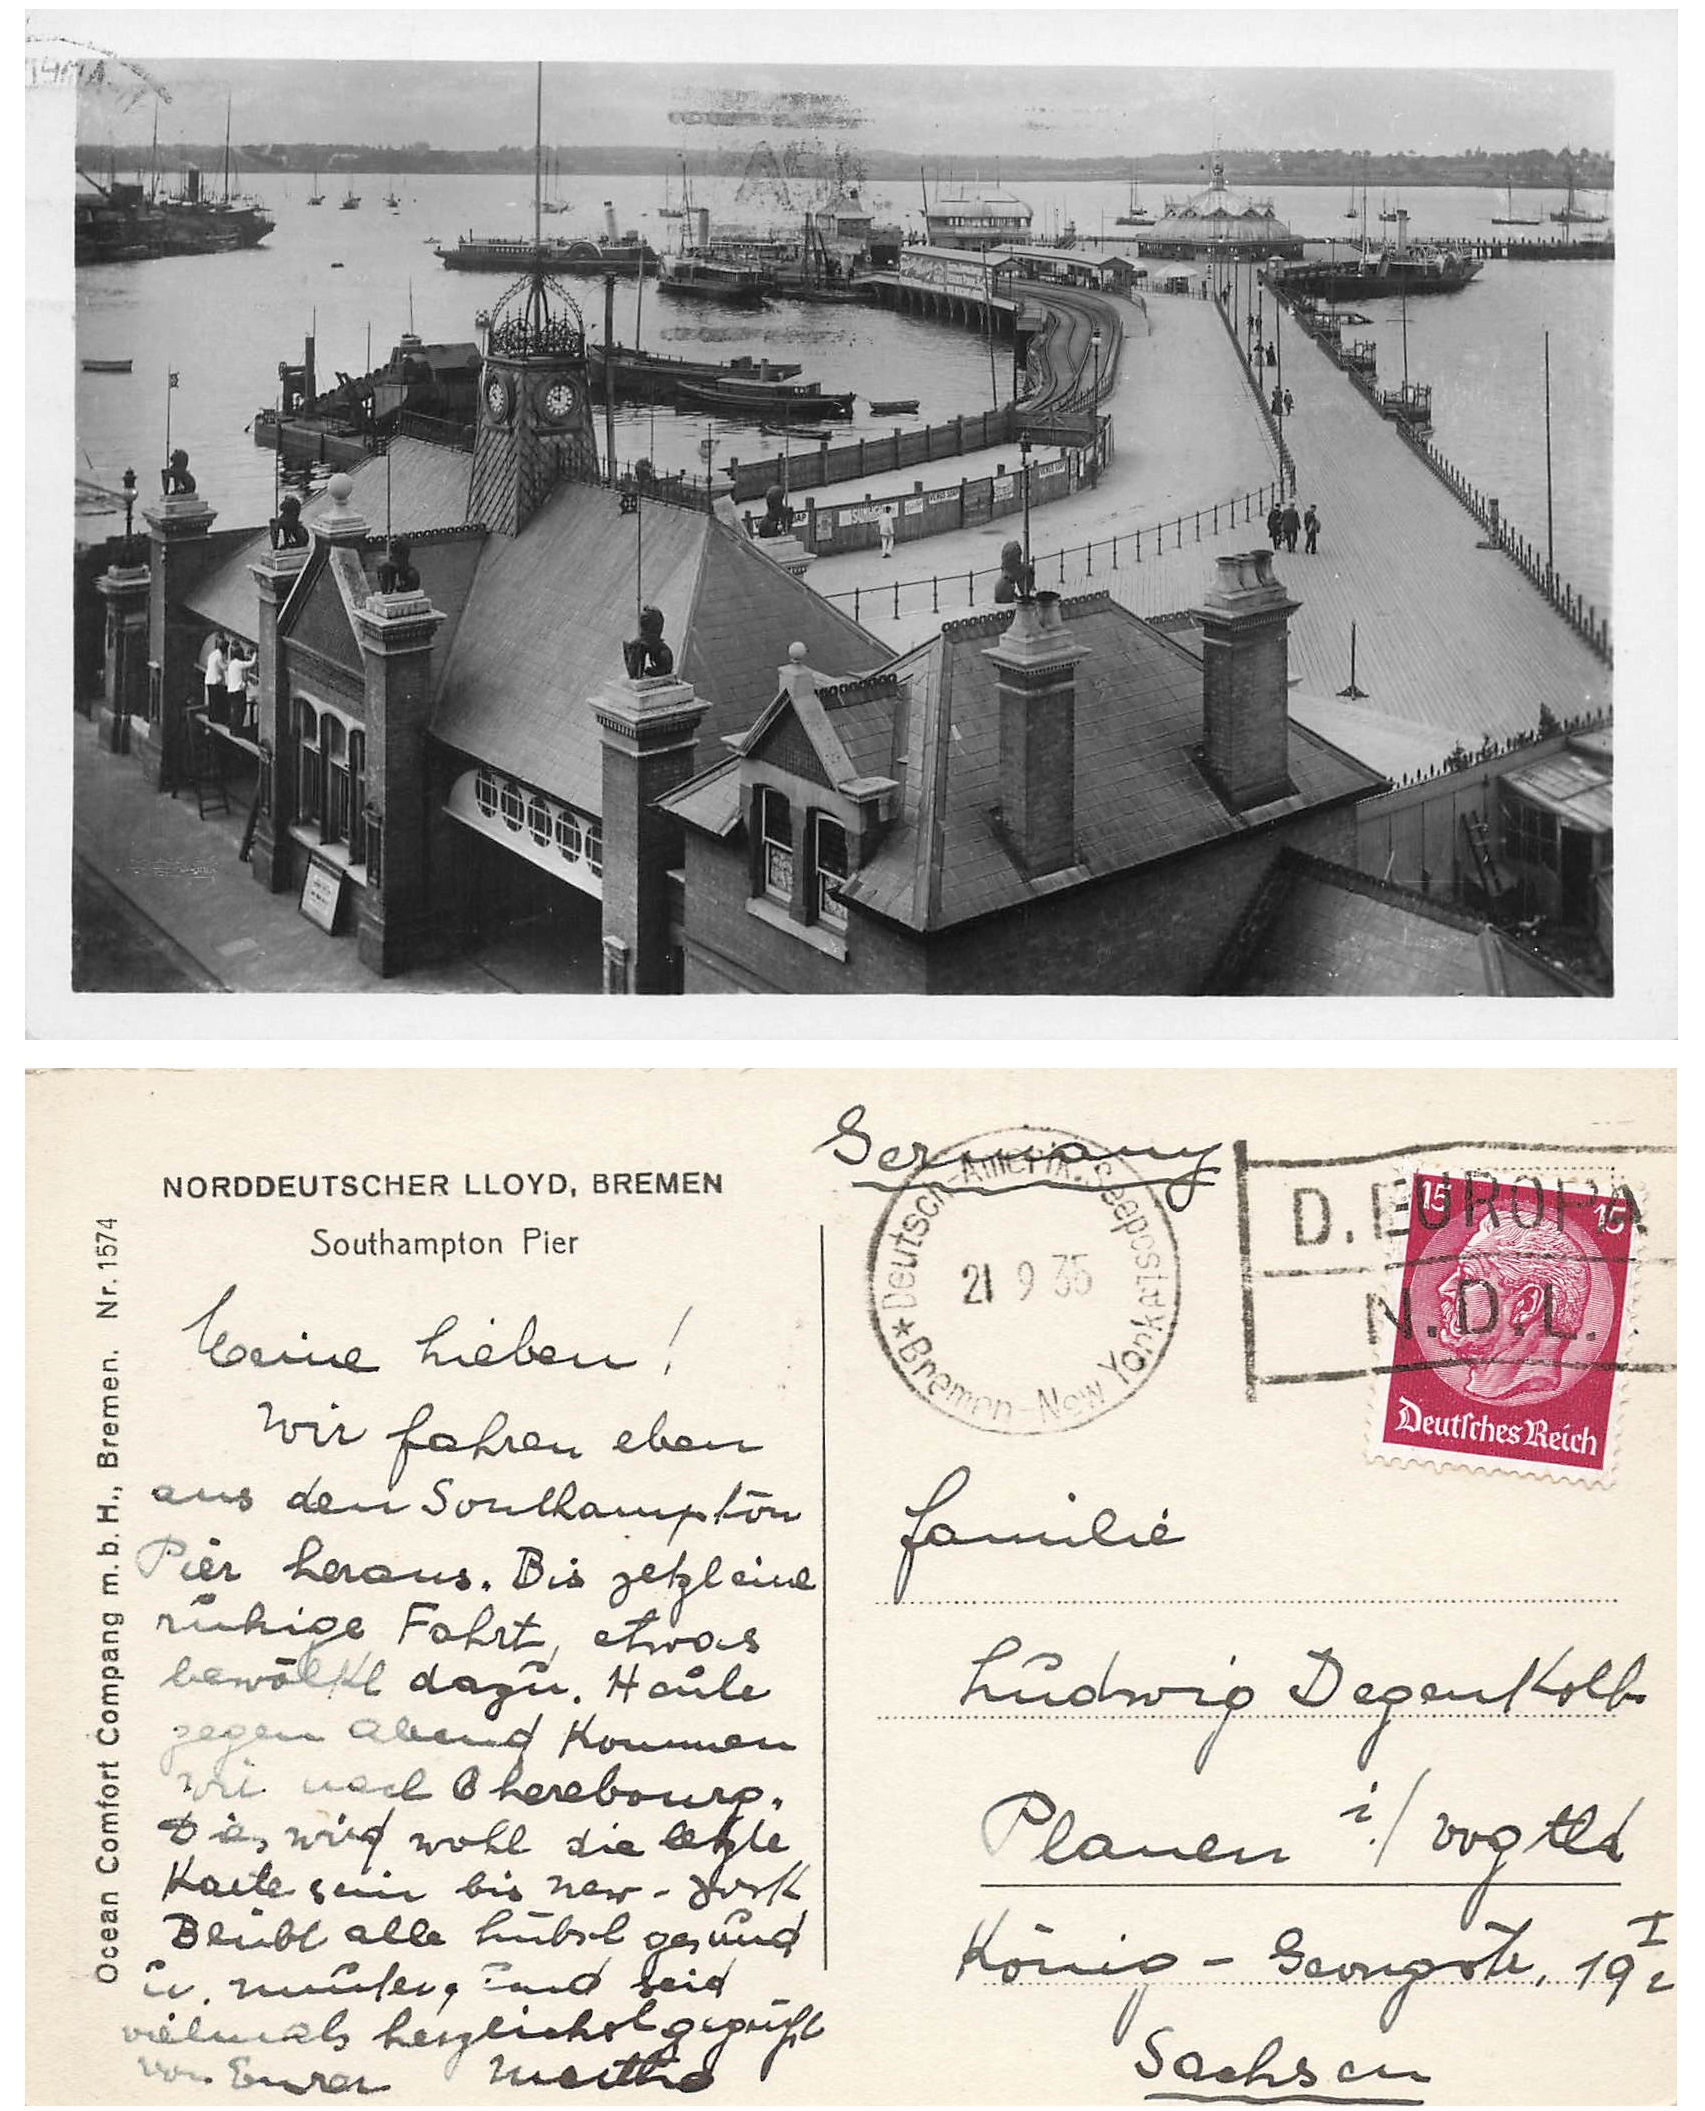 VENUS SOAP
VENUS SOAP
NORDDEUTSCHER LLOYD, BREMEN
Southampton Pier
Ocean Comfort Company m. b. H., Bremen. Nr. 1574
Meine Lieben!
Wir fahren eben
aus den Southampton
Pier heraus. Bis jetzt eine
ruhige Fahrt, etwas
bewölkt dazu. Heute
gegen Abend kommen
wir nach Cherebourg.
Dies wird wohl die letzte
Karte sein bis New-York
Bleibt alle hübsch gesund
u. munter, und seid
vielmals herzlichst gegrüßt
von Eurer Martha
Germany
Deutsch-Amerik. Seepost
Bremen-New York
21 9 35
D. EUROPA
N.D.L.
15 15
Deutsches Reich
Familie
Ludwig Degenkolb
Plauen i./Vogtld
König-Georgstr. 19 I
Sachsen